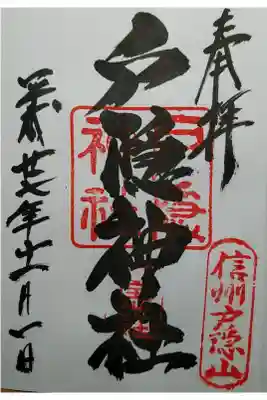 奉拝
信州戸隠山
戸隠神社
平成廿七年十一月一日